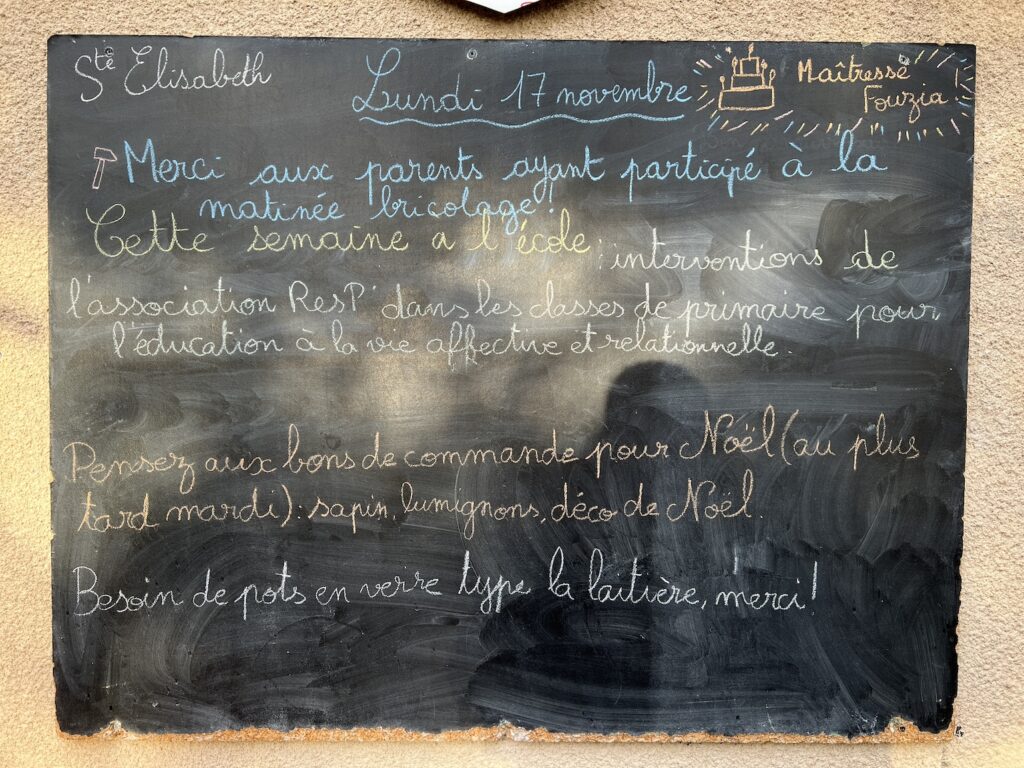 Ste Elisabeth
Lundi 17 novembre
Maîtresse
Fouzia
Merci aux parents ayant participé à la
matinée bricolage!
Cette semaine a l'école : interventions de
l'association ResP' dans les classes de primaire pour
l'éducation à la vie affective et relationnelle.
Pensez aux bons de commande pour Noël (au plus
tard mardi): sapin, lumignons, déco de Noël.
Besoin de pots en verre type la laitière, merci!